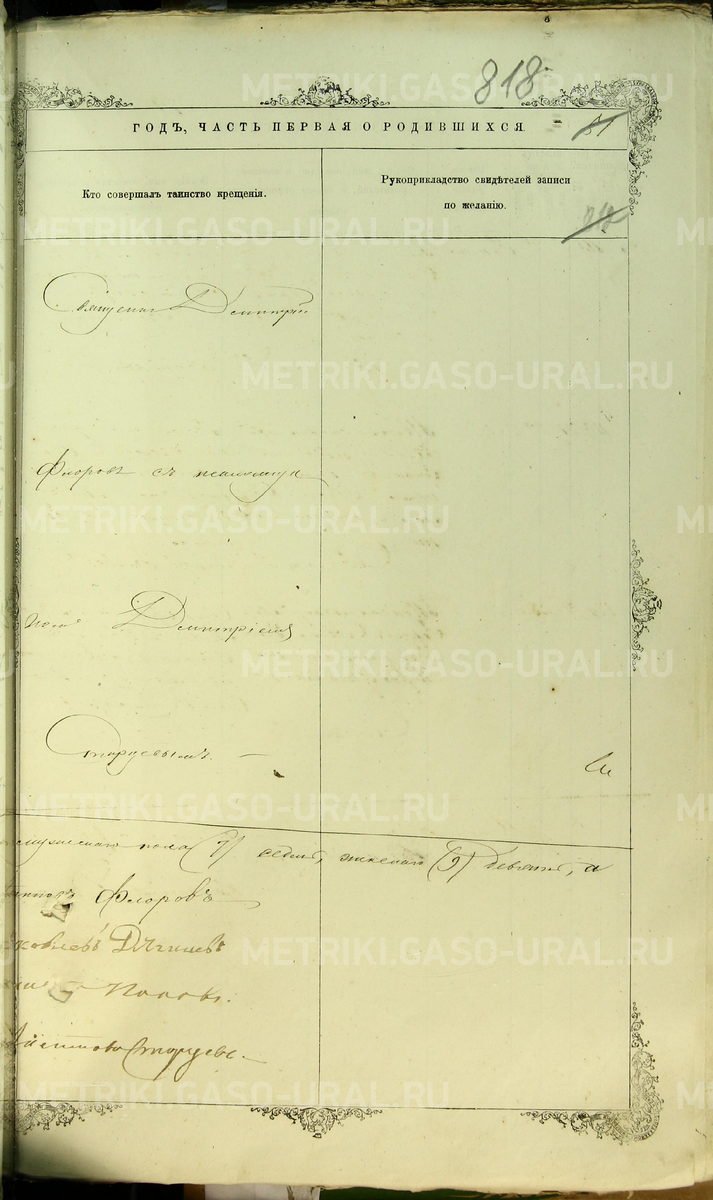 818
ГОДЪ, ЧАСТЬ ПЕРВАЯ О РОДИВШИХСЯ.
51
Кто совершалъ таинство крещенія.
Рукоприкладство свидѣтелей записи
по желанію.
Священникъ Дмитрій
Флоровъ съ псаломщи
комъ Дмитріемъ
Старцевымъ. —
мужескаго пола (7) седмь, женскаго (9) девять, а
Флоровъ
Дягилевъ
Поповъ.
Старцевъ.
METRIKI.GASO-URAL.RU